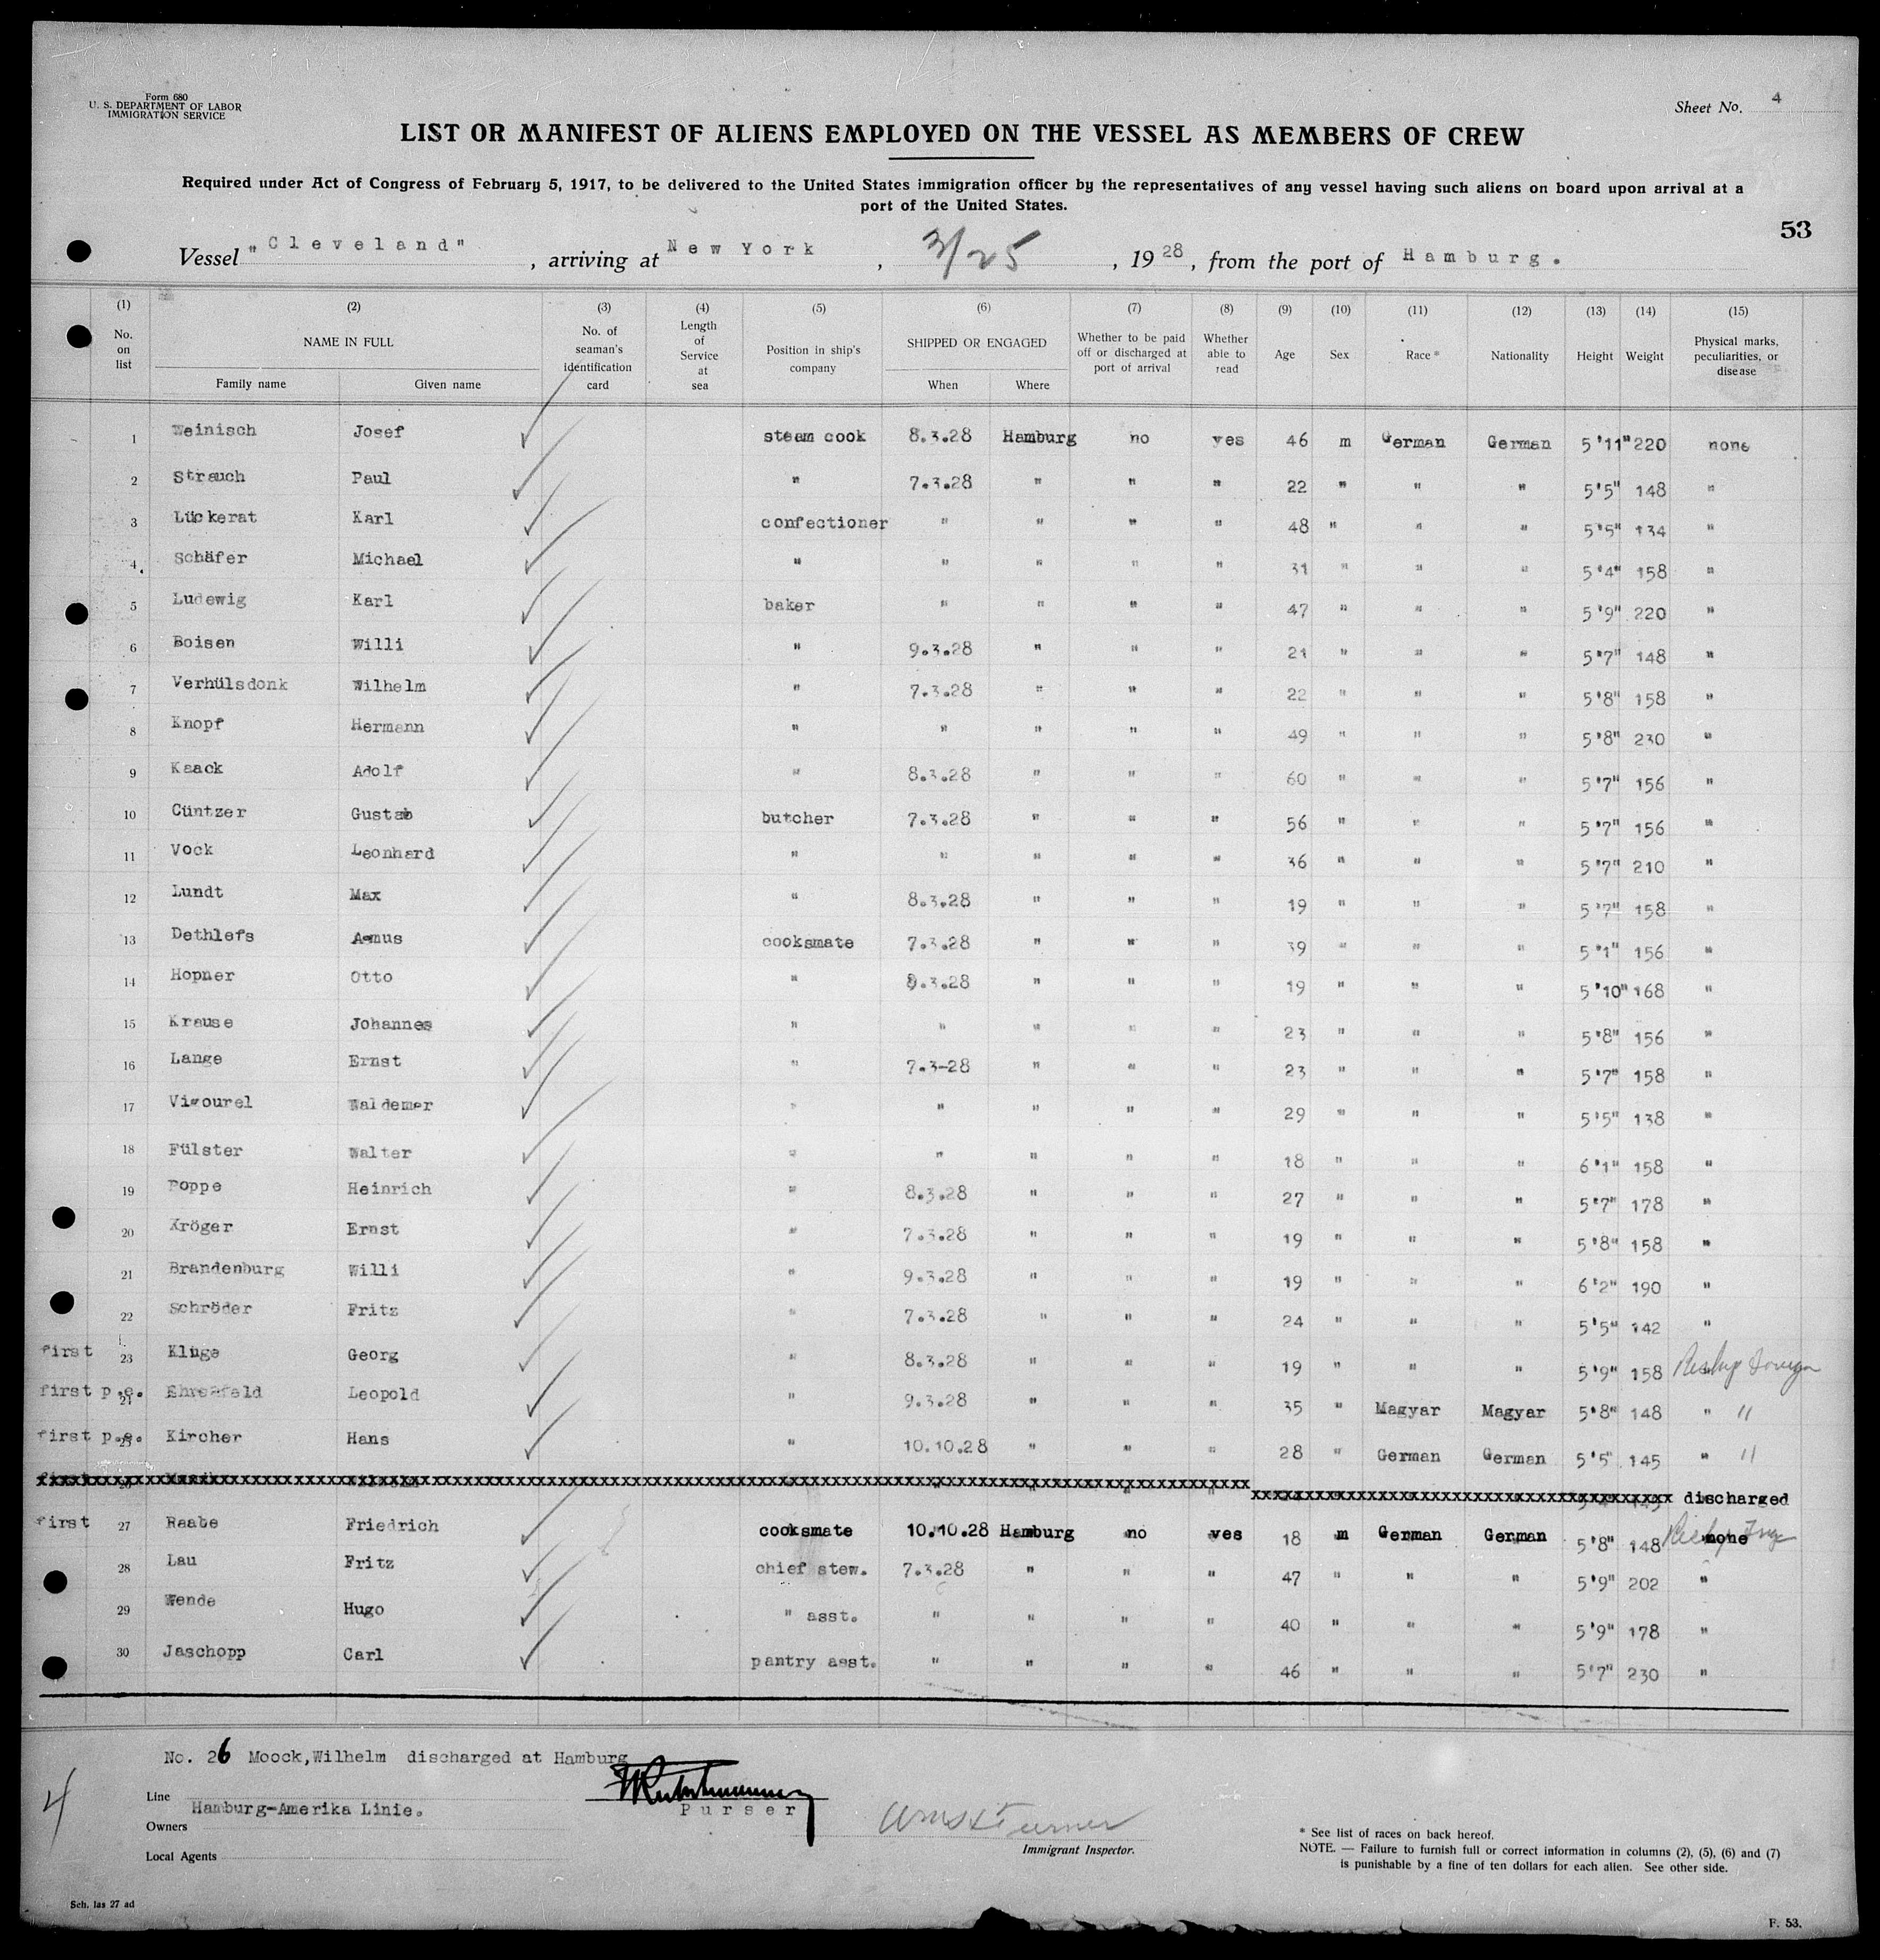 Form 680
U. S. DEPARTMENT OF LABOR
IMMIGRATION SERVICE
Sheet No. 4
LIST OR MANIFEST OF ALIENS EMPLOYED ON THE VESSEL AS MEMBERS OF CREW
Required under Act of Congress of February 5, 1917, to be delivered to the United States immigration officer by the representatives of any vessel having such aliens on board upon arrival at a
port of the United States.
53
Vessel "Cleveland", arriving at New York, 3/25, 1928, from the port of Hamburg.
(1) (2) (3) (4) (5) (6) (7) (8) (9) (10) (11) (12) (13) (14) (15)
No. on list NAME IN FULL No. of seaman's identification card Length of Service at sea Position in ship's company SHIPPED OR ENGAGED Whether to be paid off or discharged at port of arrival Whether able to read Age Sex Race* Nationality Height Weight Physical marks, peculiarities, or disease
Family name Given name When Where
1 Weinisch Josef steam cook 8.3.28 Hamburg no yes 46 m German German 5'11" 220 none
2 Strauch Paul " 7.3.28 " " " 22 " " " 5'5" 148 "
3 Lückerat Karl confectioner " " " " 48 " " " 5'5" 134 "
4. Schäfer Michael " " " " " 31 " " " 5'4" 158 "
5 Ludewig Karl baker " " " " 47 " " " 5'9" 220 "
6 Boisen Willi " 9.3.28 " " " 21 " " " 5'7" 148 "
7 Verhülsdonk Wilhelm " 7.3.28 " " " 22 " " " 5'8" 158 "
8 Knopf Hermann " " " " " 49 " " " 5'8" 230 "
9 Kaack Adolf " 8.3.28 " " " 60 " " " 5'7" 156 "
10 Cüntzer Gustab butcher 7.3.28 " " " 56 " " " 5'7" 156 "
11 Vock Leonhard " " " " " 36 " " " 5'7" 210 "
12 Lundt Max " 8.3.28 " " " 19 " " " 5'7" 158 "
13 Dethlefs Asmus cooksmate 7.3.28 " " " 39 " " " 5'1" 156 "
14 Hopner Otto " 8.3.28 " " " 19 " " " 5'10" 168 "
15 Krause Johannes " " " " " 23 " " " 5'8" 156 "
16 Lange Ernst " 7.3-28 " " " 23 " " " 5'7" 158 "
17 Vigourel Waldemar " " " " " 29 " " " 5'5" 138 "
18 Fülster Walter " " " " " 18 " " " 6'1" 158 "
19 Poppe Heinrich " 8.3.28 " " " 27 " " " 5'7" 178 "
20 Kröger Ernst " 7.3.28 " " " 19 " " " 5'8" 158 "
21 Brandenburg Willi " 9.3.28 " " " 19 " " " 6'2" 190 "
22 Schröder Fritz " 7.3.28 " " " 24 " " " 5'5" 142 "
first 23 Kluge Georg " 8.3.28 " " " 19 " " " 5'9" 158 Reship foreign
first p.e. 24 Ehrenfeld Leopold " 9.3.28 " " " 35 " Magyar Magyar 5'8" 148 " "
first p.e. 25 Kircher Hans " 10.10.28 " " " 28 " German German 5'5" 145 " "
discharged
first 27 Raabe Friedrich cooksmate 10.10.28 Hamburg no yes 18 m German German 5'8" 148 none
28 Lau Fritz chief stew. 7.3.28 " " " 47 " " " 5'9" 202 "
29 Wende Hugo " asst. " " " " 40 " " " 5'9" 178 "
30 Jaschopp Carl pantry asst. " " " " 46 " " " 5'7" 230 "
No. 26 Moock,Wilhelm discharged at Hamburg
4
Line
Hamburg-Amerika Linie.
Purser
Owners
Immigrant Inspector.
Local Agents
* See list of races on back hereof.
NOTE. — Failure to furnish full or correct information in columns (2), (5), (6) and (7)
is punishable by a fine of ten dollars for each alien. See other side.
Sch. las 27 ad
F. 53.